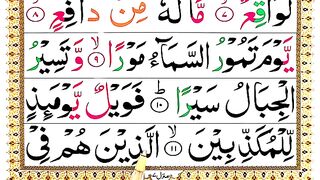 لَوَاقِعٌ ۙ﴿۷﴾ مَّا لَهٗ مِنْ دَافِعٍ ۙ﴿۸﴾
يَّوْمَ تَمُوْرُ السَّمَآءُ مَوْرًا ۙ﴿۹﴾ وَّ تَسِيْرُ
الْجِبَالُ سَيْرًا ؕ﴿۱۰﴾ فَوَيْلٌ يَّوْمَئِذٍ
لِّلْمُكَذِّبِيْنَ ۙ﴿۱۱﴾ الَّذِيْنَ هُمْ فِيْ